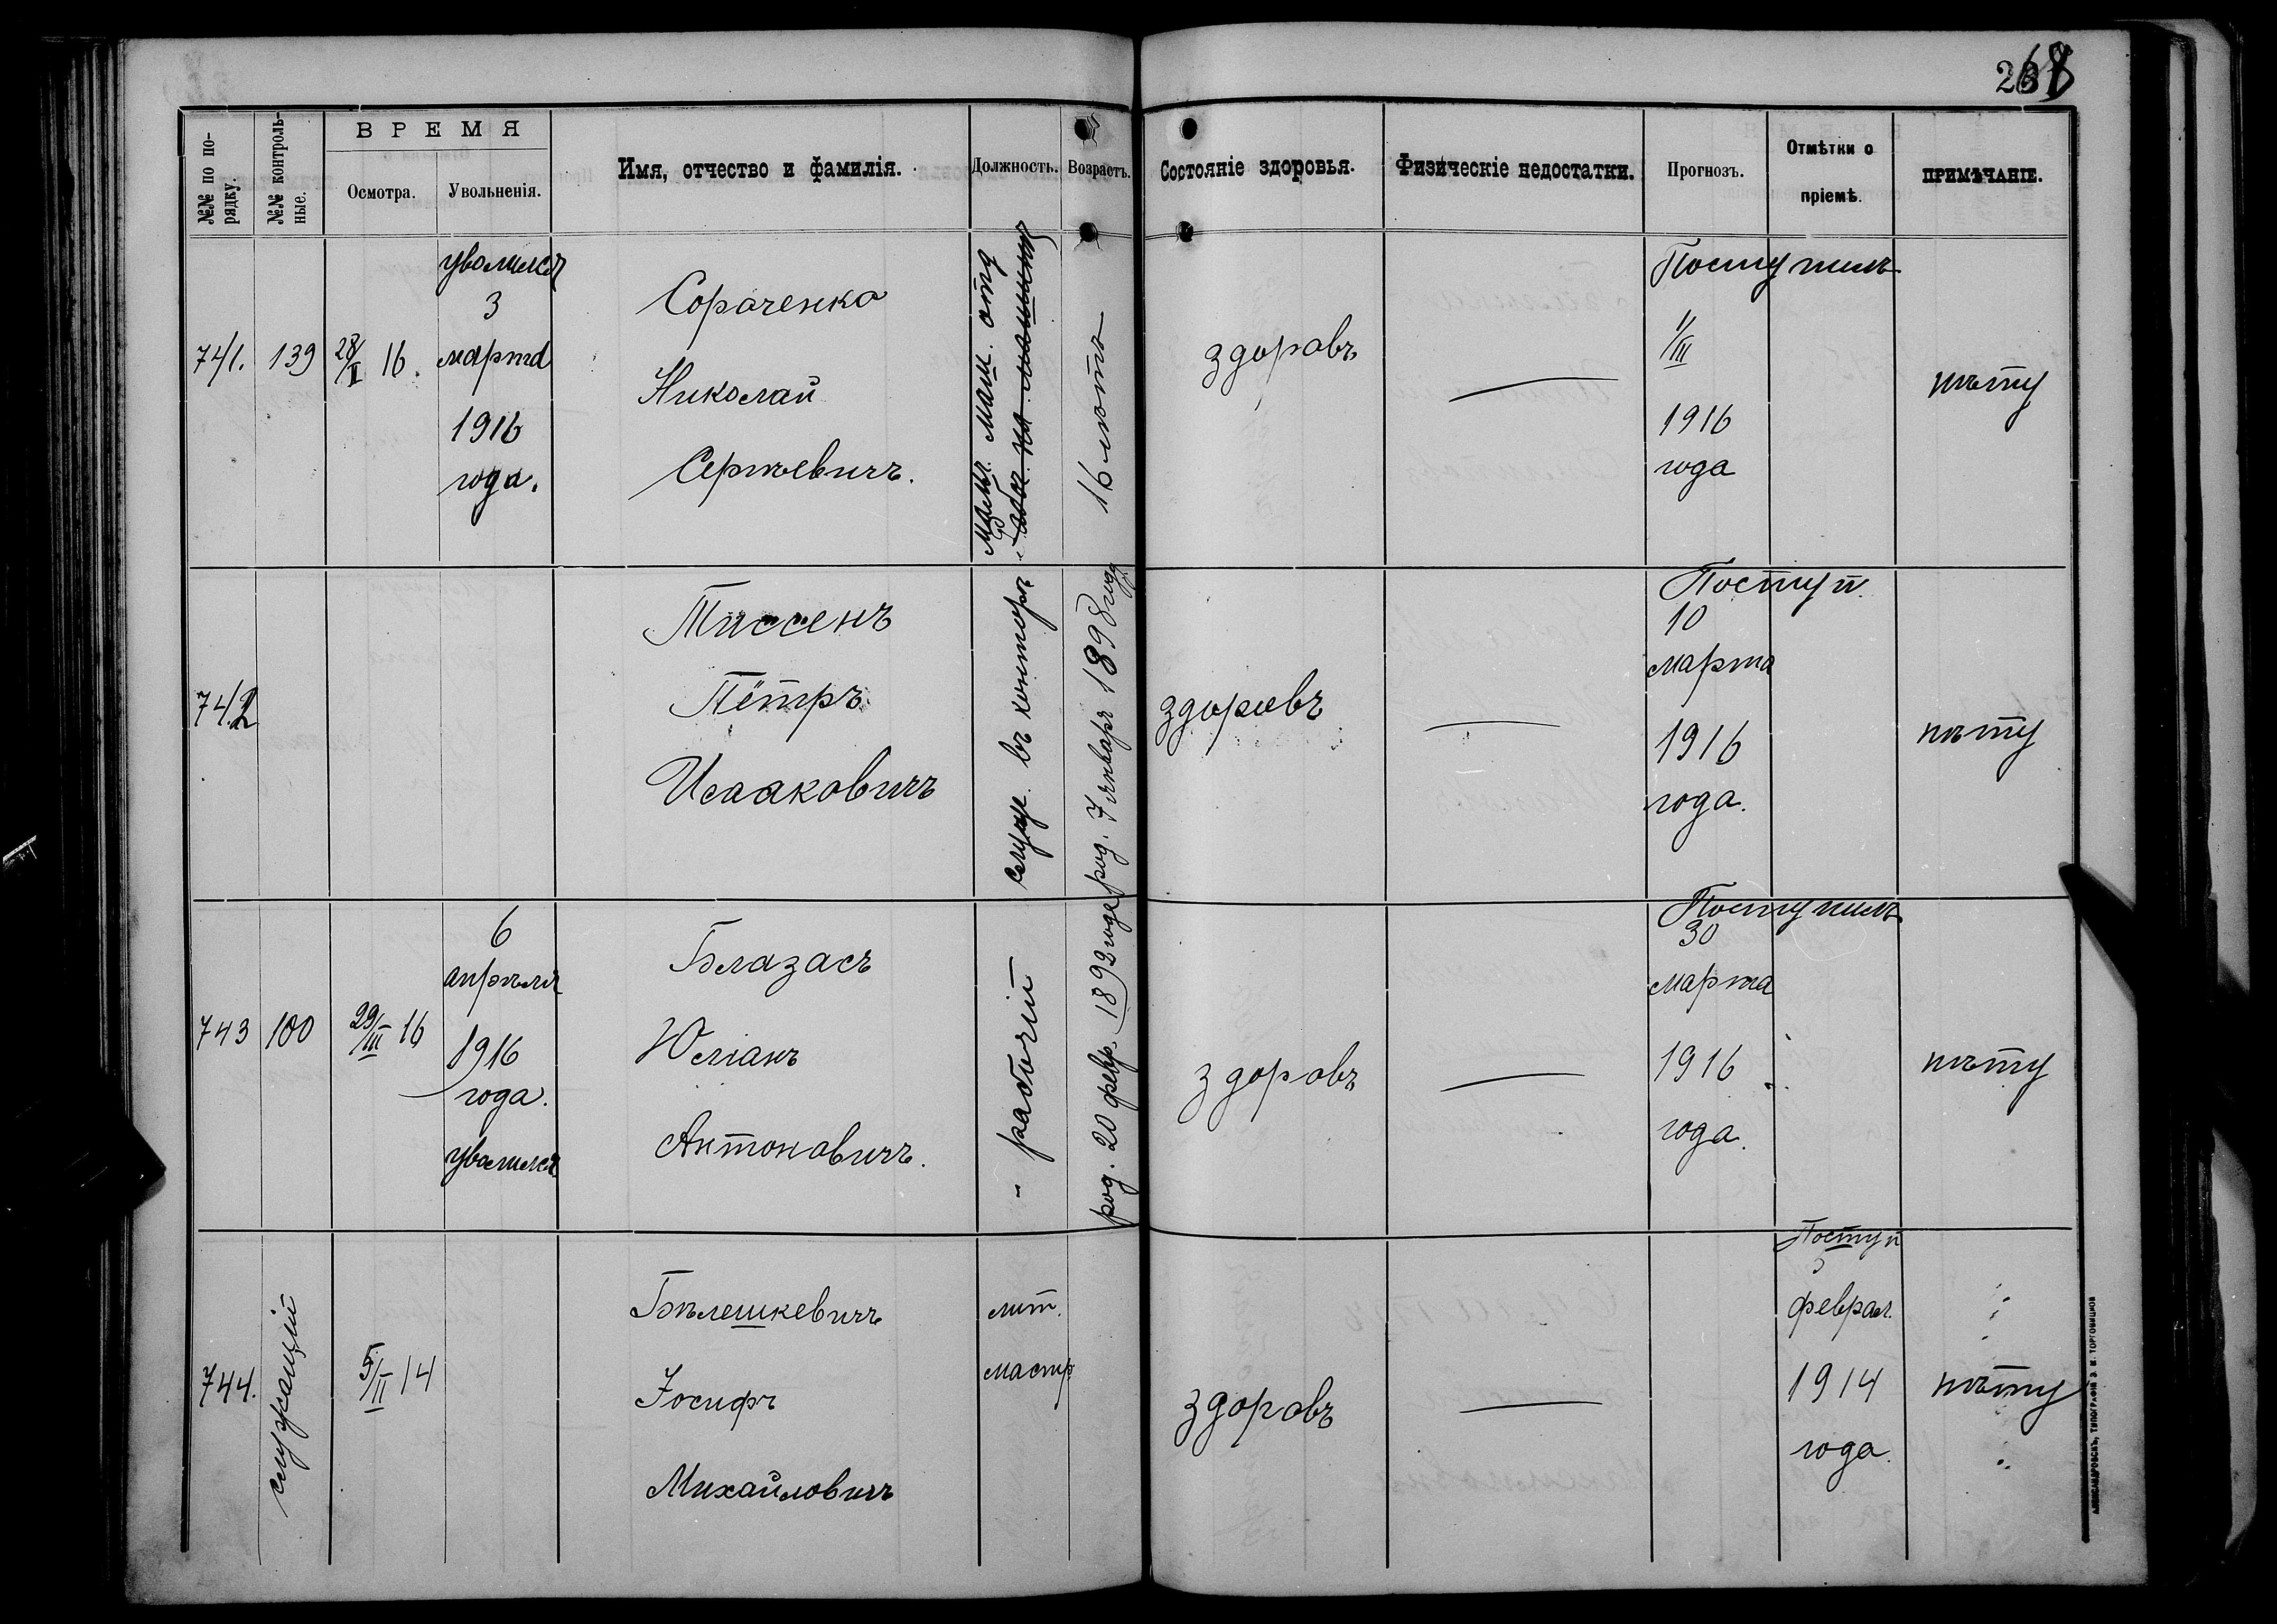 268
ВРЕМЯ
№№ по по-
рядку.
№№ контроль-
ные.
Осмотра.
Увольненія.
Имя, отчество и фамилія.
Должность.
Возрастъ.
Состояніе здоровья.
Физическіе недостатки.
Прогнозъ.
Отмѣтки о
пріемѣ.
ПРИМѢЧАНІЕ.
741.
139
28/II 16.
уволился
3
марта
1916
года.
Сораченко
Николай
Сергѣевичъ.
маш. отд
на машинкѣ
16 лѣтъ
здоровъ
—
Поступилъ
1/III
1916
года
нѣту
742
Тиссенъ
Пётръ
Исааковичъ
служ. въ конторѣ
род. 7 январ 1898 году
здоровъ
—
Поступ.
10
марта
1916
года.
нѣту
743
100
29/III 16
6
апрѣля
1916
года.
уволился
Блазасъ
Юліанъ
Антоновичъ.
" рабочій
род. 20 февр. 1892 годе
здоровъ
—
Поступилъ
30
марта
1916
года.
нѣту
744.
служащій
5/II 14
Бѣлешкевичъ
Іосифъ
Михайловичъ
лит.
мастр
здоровъ
—
Поступ
5
феврал.
1914
года.
нѣту
АЛЕКСАНДРОВСКЪ, ТИПОГРАФІЯ Э. И. ТОРГОВИЦКОВ